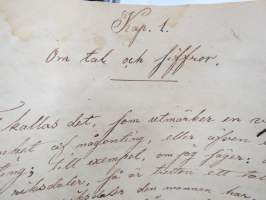 Kap. 1.
Om tal och siffror.
kallas det, som utmärker en v
het af någonting, eller äfven
ting; till exempel, om jag säger: a
riksdaler, så är Tretton ett tal
daler den mannen har